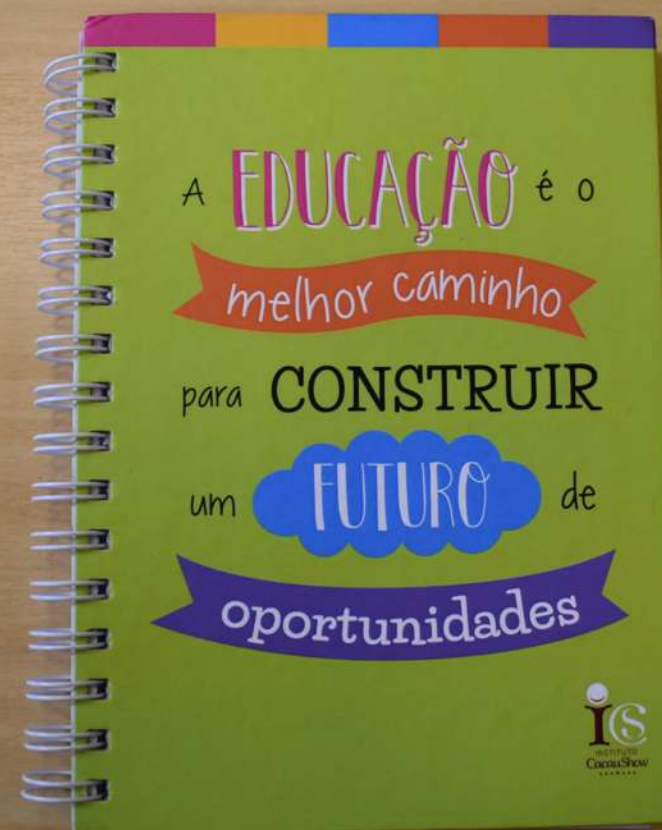 A EDUCAÇÃO é o
melhor caminho
para CONSTRUIR
um FUTURO de
oportunidades
ICS
INSTITUTO
CacauShow